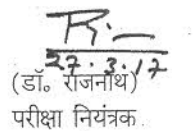 27.3.17
(डॉ० राजनाथ)
परीक्षा नियंत्रक